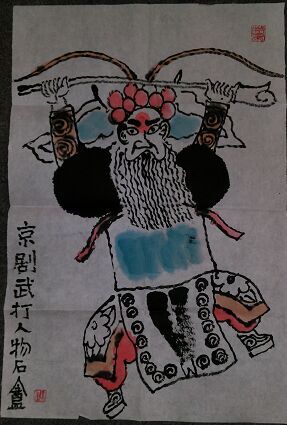 京剧武打人物石盦